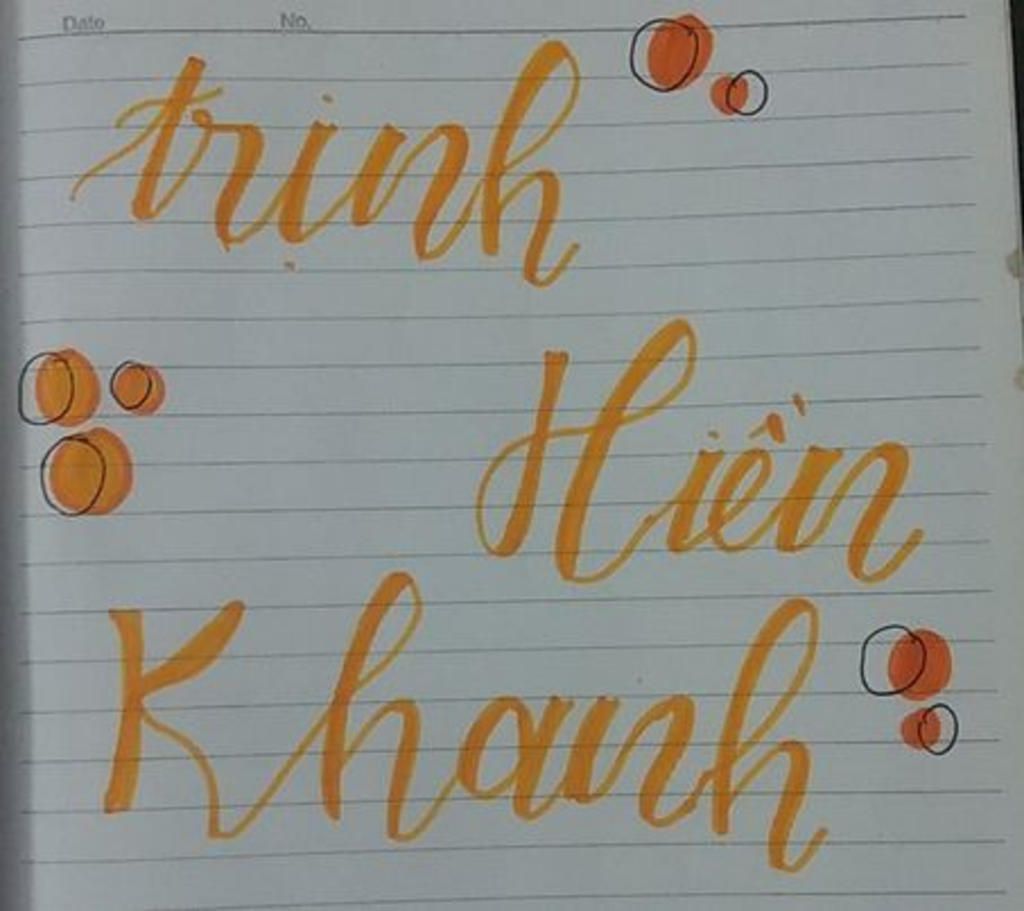 Date No.
trịnh
Hiền
Khanh